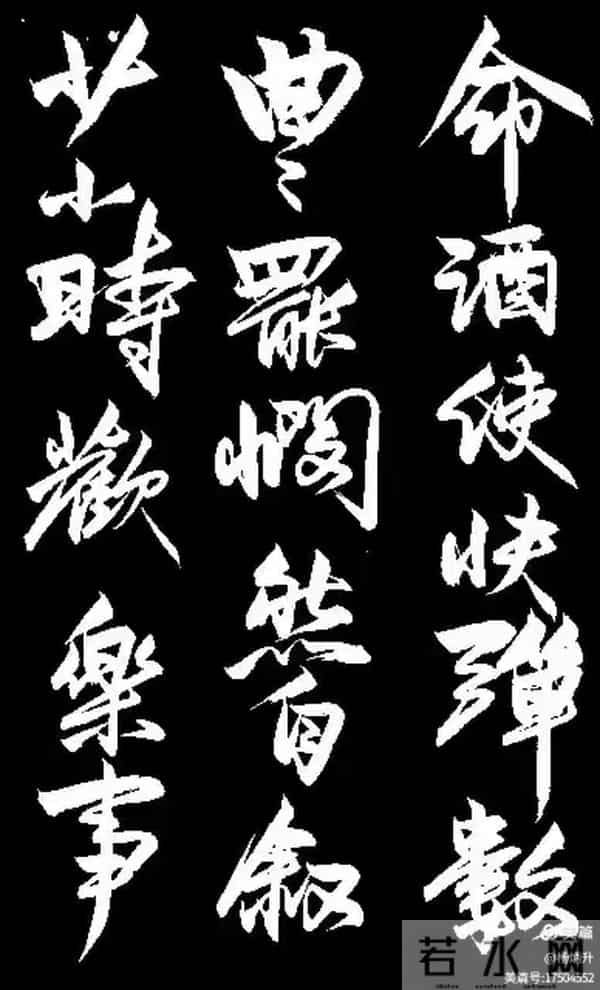 命酒使快彈數
曲〻罷憫然自叙
少小時歡樂事
美篇
美篇号:17504552
若水网